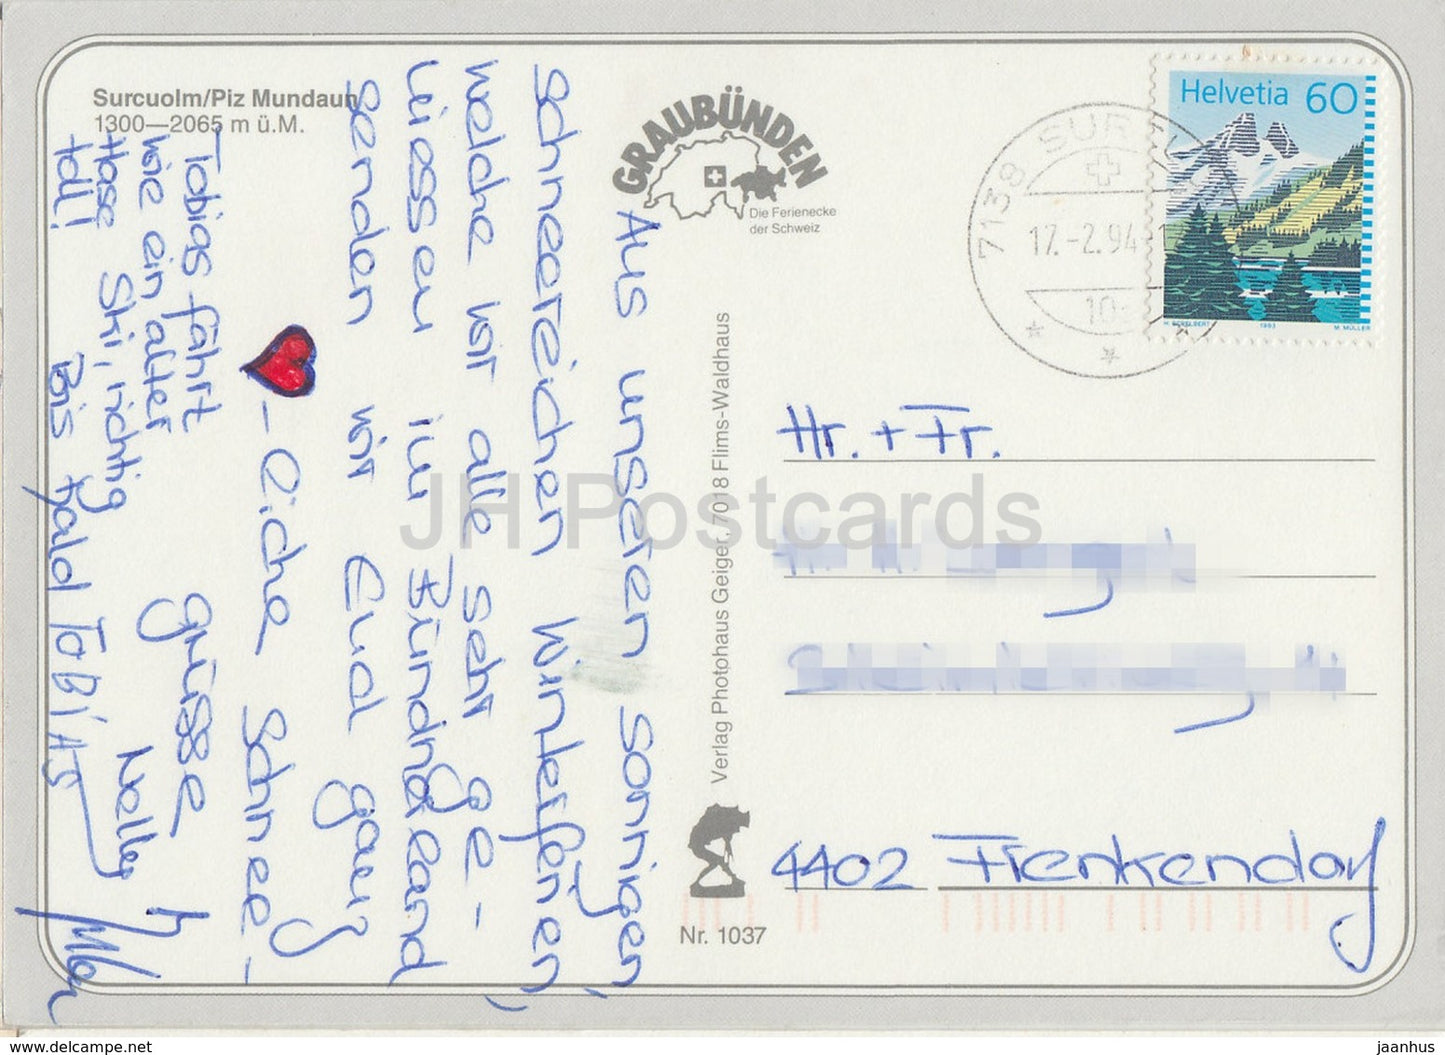 Surcuolm/Piz Mundaun
1300—2065 m ü.M.
GRAUBÜNDEN
Die Ferienecke
der Schweiz
Helvetia 60
1993
M. MÜLLER
7138 SUR
17.-2.94-1
10
Aus unseren sonnigen,
schneereichen Winterferien,
welche wir alle sehr ge-
niessen im Bündnerland
senden wir Euch ganz
❤-liche Schnee-
grüsse
Nelly
Tobias fährt
wie ein alter
Hase Ski, richtig
toll!
Bis bald TOBIAS
Hr. + Fr.
4402 Frenkendorf
Verlag Photohaus Geiger, 7018 Flims-Waldhaus
Nr. 1037
JH Postcards
www.delcampe.net
jaanhus